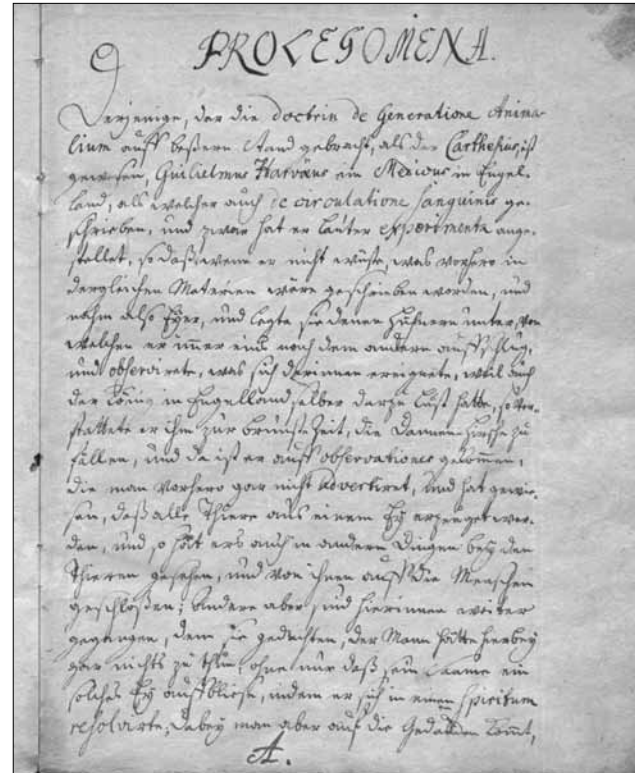 PROLEGOMENA.
Derjenige, der die doctrin de Generatione Anima-
lium auff beßern Stand gebracht, als der Carthesius, ist
gewesen, Guilielmus Harväus ein Medicus in Engel-
land, als welcher auch de circulatione sanguinis ge-
schrieben, und zwar hat er lauter experimenta ange-
stellet, so daß wenn er nicht wüste, was vorhero in
dergleichen Materien wäre geschrieben worden, und
nahm also Eÿer, und legte sie denen Hühnern unter, von
welchen er immer eins nach dem andern auffschlug,
und observirete, was sich darinnen ereignete, weil auch
der König in Engelland selber darzu Lust hatte, so ver-
stattete er ihm zur Brunst Zeit, die Dannen-Hirsche zu
fällen, und da ist er auff observationes gekommen,
die man vorhero gar nicht advertiret, und hat gewie-
sen, daß alle Thiere aus einem Eÿ erzeuget wer-
den, und so hat ers auch in andern Dingen beÿ den
Thieren gesehen, und von ihnen auff die Menschen
geschloßen; Andere aber sind hierinnen weiter
gegangen, denn sie gedachten, der Mann hätte hierbeÿ
gar nichts zu thun, ohne nur daß sein Saame ein
solches Eÿ auffbliese, indem er sich in einen Spiritum
resolvirte, dabeÿ man aber auf die Gedancken kömt,
A.